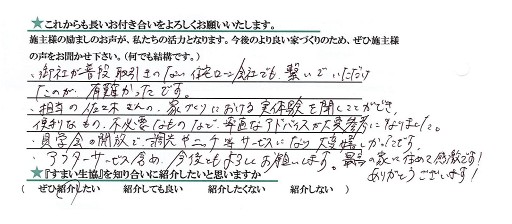 ★これからも長いお付き合いをよろしくお願いいたします。
施主様の励ましのお声が、私たちの活力となります。今後のより良い家づくりのため、ぜひ施主様
の声をお聞かせ下さい。(何でも結構です。)
・御社が普段取引きのない住宅ローン会社でも、繋いでいただけ
たのが、有難かったです。
・担当の佐々木さんの、家づくりにおける実体験を聞くことができ、
便利なもの、不必要なものなど、率直なアドバイスが大変参考になりました。
・見学会の開放で、採光やニッチ等サービスになり大変嬉しかったです。
・アフターサービス含め、今後ともよろしくお願いします。最高の家に住めて感激です!
ありがとうございます!
★『すまい生協』を知り合いに紹介したいと思いますか
( ぜひ紹介したい 紹介しても良い 紹介したくない 紹介しない )